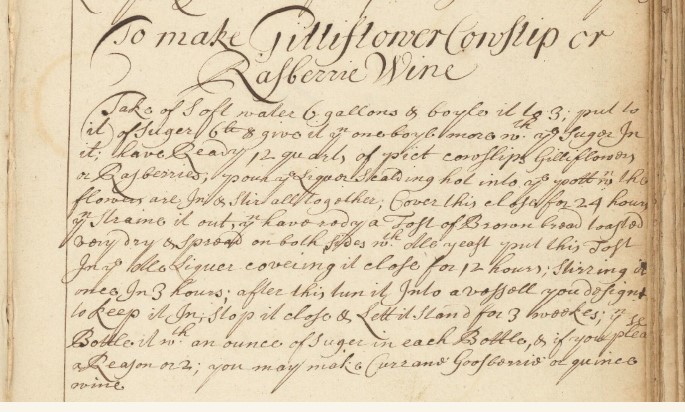 To make Gilliflower Cowslip or
Rasberrie Wine
Take of Soft water 6 gallons & boyle it to 3; put to
it of Suger 6lb & give it yn one boyle more wth ye Suger In
it; have Ready 12 quarts of pict cowslips Gilliflowers
or Rasberries; pour ye Liquor Scalding hot into ye pott wn the
flowers are In & Stir all together; Cover this close for 24 hours
yn Straine it out, yn have redy a Tost of Brown bread toasted
very dry & Spread on both Sides wth Ale yeast put this Tost
In ye Liquer covering it close for 12 hours; Stirring it
once In 3 hours; after this tun it Into a vessell you designe
to keep it In; Stop it close & Lett it Stand for 3 weekes; yn
Bottle it wth an ounce of Suger in each Bottle, & if you plea
a Reason or 2; you may make Currane Goosberrie or quince
wine